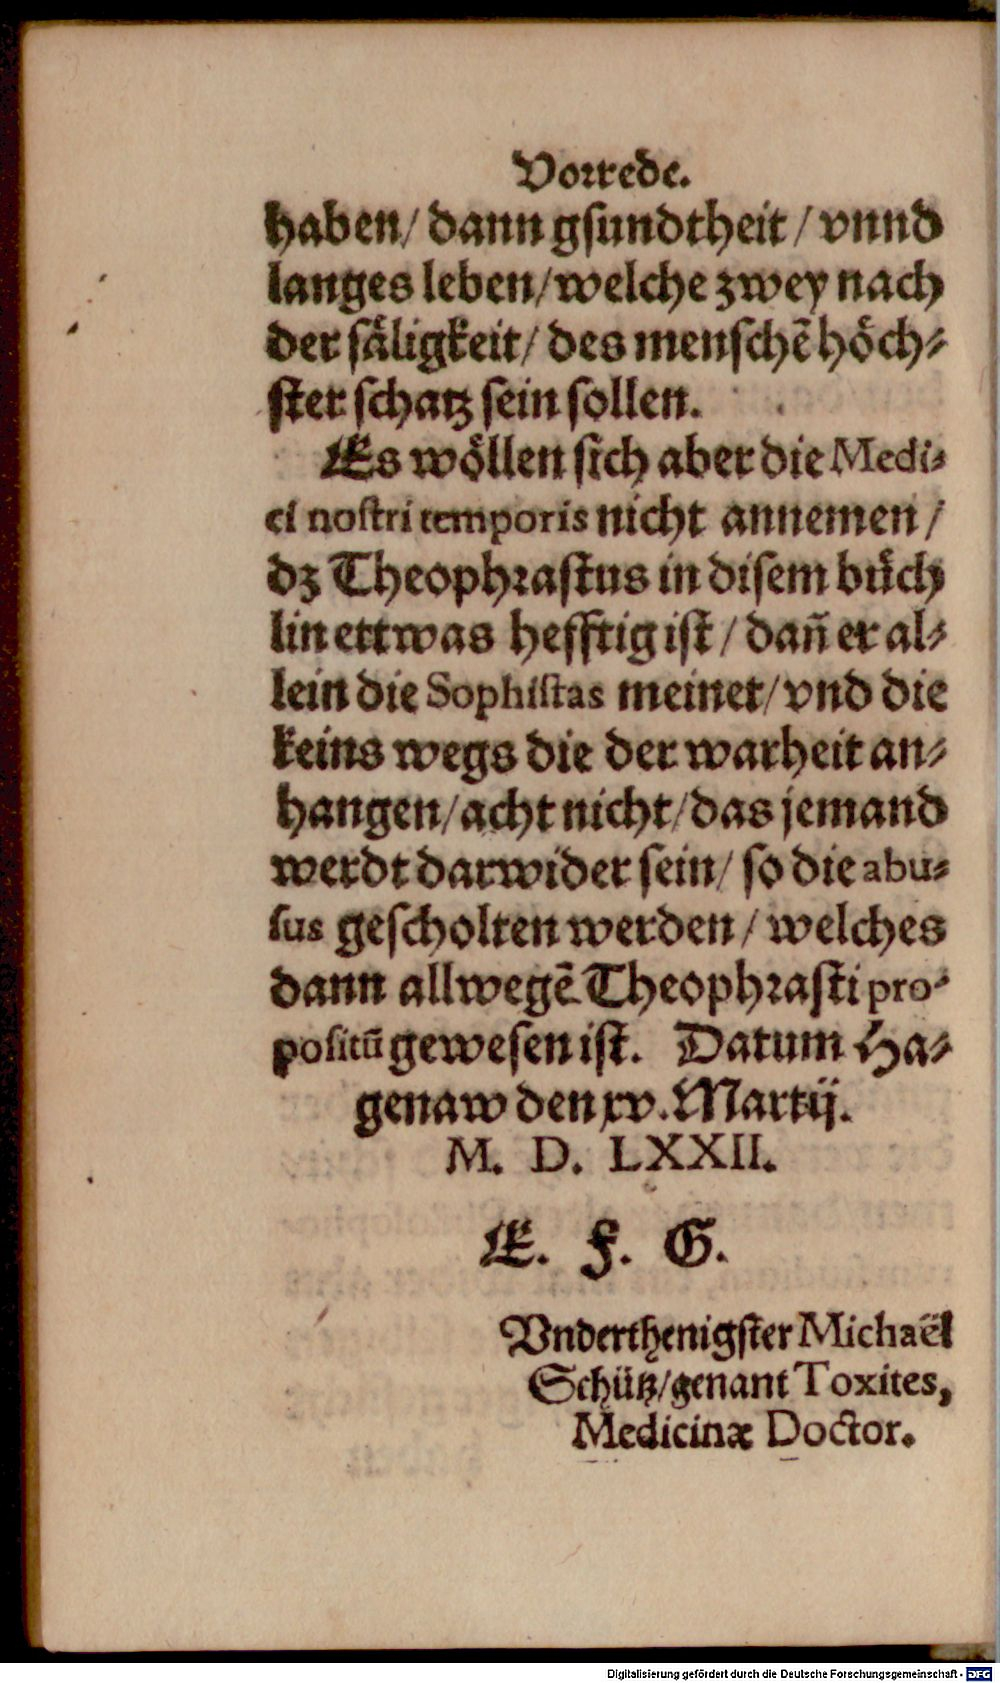 Vorrede.
haben/ dann gsundtheit/ vnnd
langes leben/welche zwey nach
der säligkeit/ des menschē höch-
ster schatz sein sollen.
Es wöllen sich aber die Medi-
ci nostri temporis nicht annemen/
dz Theophrastus in disem büch
lin ettwas hefftig ist/ dañ er al-
lein die Sophistas meinet/ vnd die
keins wegs die der warheit an-
hangen/ acht nicht/ das jemand
werdt darwider sein/ so die abu-
sus gescholten werden/ welches
dann allwegē Theophrasti pro-
positū gewesen ist. Datum Ha-
genaw den xv. Martij.
M. D. LXXII.
E. F. G.
Vnderthenigster Michaël
Schütz/genant Toxites,
Medicinæ Doctor.
Digitalisierung gefördert durch die Deutsche Forschungsgemeinschaft - DFG